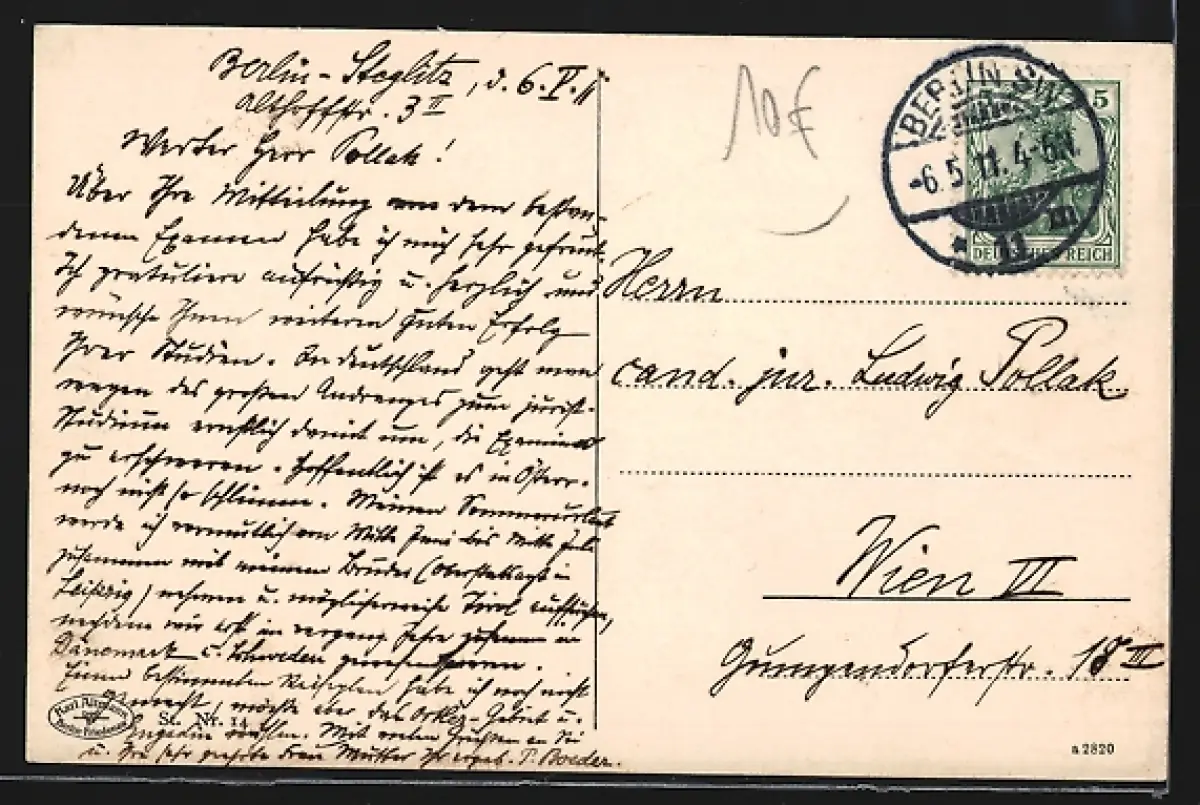 Berlin-Steglitz, d. 6.V.11
Althoffstr. 3 II
Werter Herr Pollak!
Über Ihre Mitteilung von dem bestan-
denen Examen habe ich mich sehr gefreut.
Ich gratuliere aufrichtig u. herzlich und
wünsche Ihnen weiteren guten Erfolg
Ihrer Studien. In Deutschland geht man
wegen des großen Andranges zum jurist.
Studium ernstlich damit um, die Examina
zu erschweren. Hoffentlich ist es in Österr.
noch nicht so schlimm. Meinen Sommerurlaub
werde ich vermutlich von Mitte Juni bis Mitte Juli
zusammen mit meinem Bruder (Oberstabsarzt in
Leipzig) nehmen u. möglicherweise Tirol aufsuchen,
nachdem wir erst im vergang. Jahre zusammen in
Dänemark u. Schweden gewesen waren.
Einen bestimmten Reiseplan habe ich noch nicht
gemacht, möchte aber das Ortler-Gebiet u.
Engadin wählen. Mit vielen Grüßen an Sie
u. Ihre sehr geehrte Frau Mutter Ihr ergeb. P. Boeder.
10€
BERLIN SW
-6.5.11.4-5N.
* 11 m
5
DEUTSCHES REICH
Herrn
cand. jur. Ludwig Pollak
Wien VI
Gumpendorferstr. 18 III
St. Nr. 14
a 2820